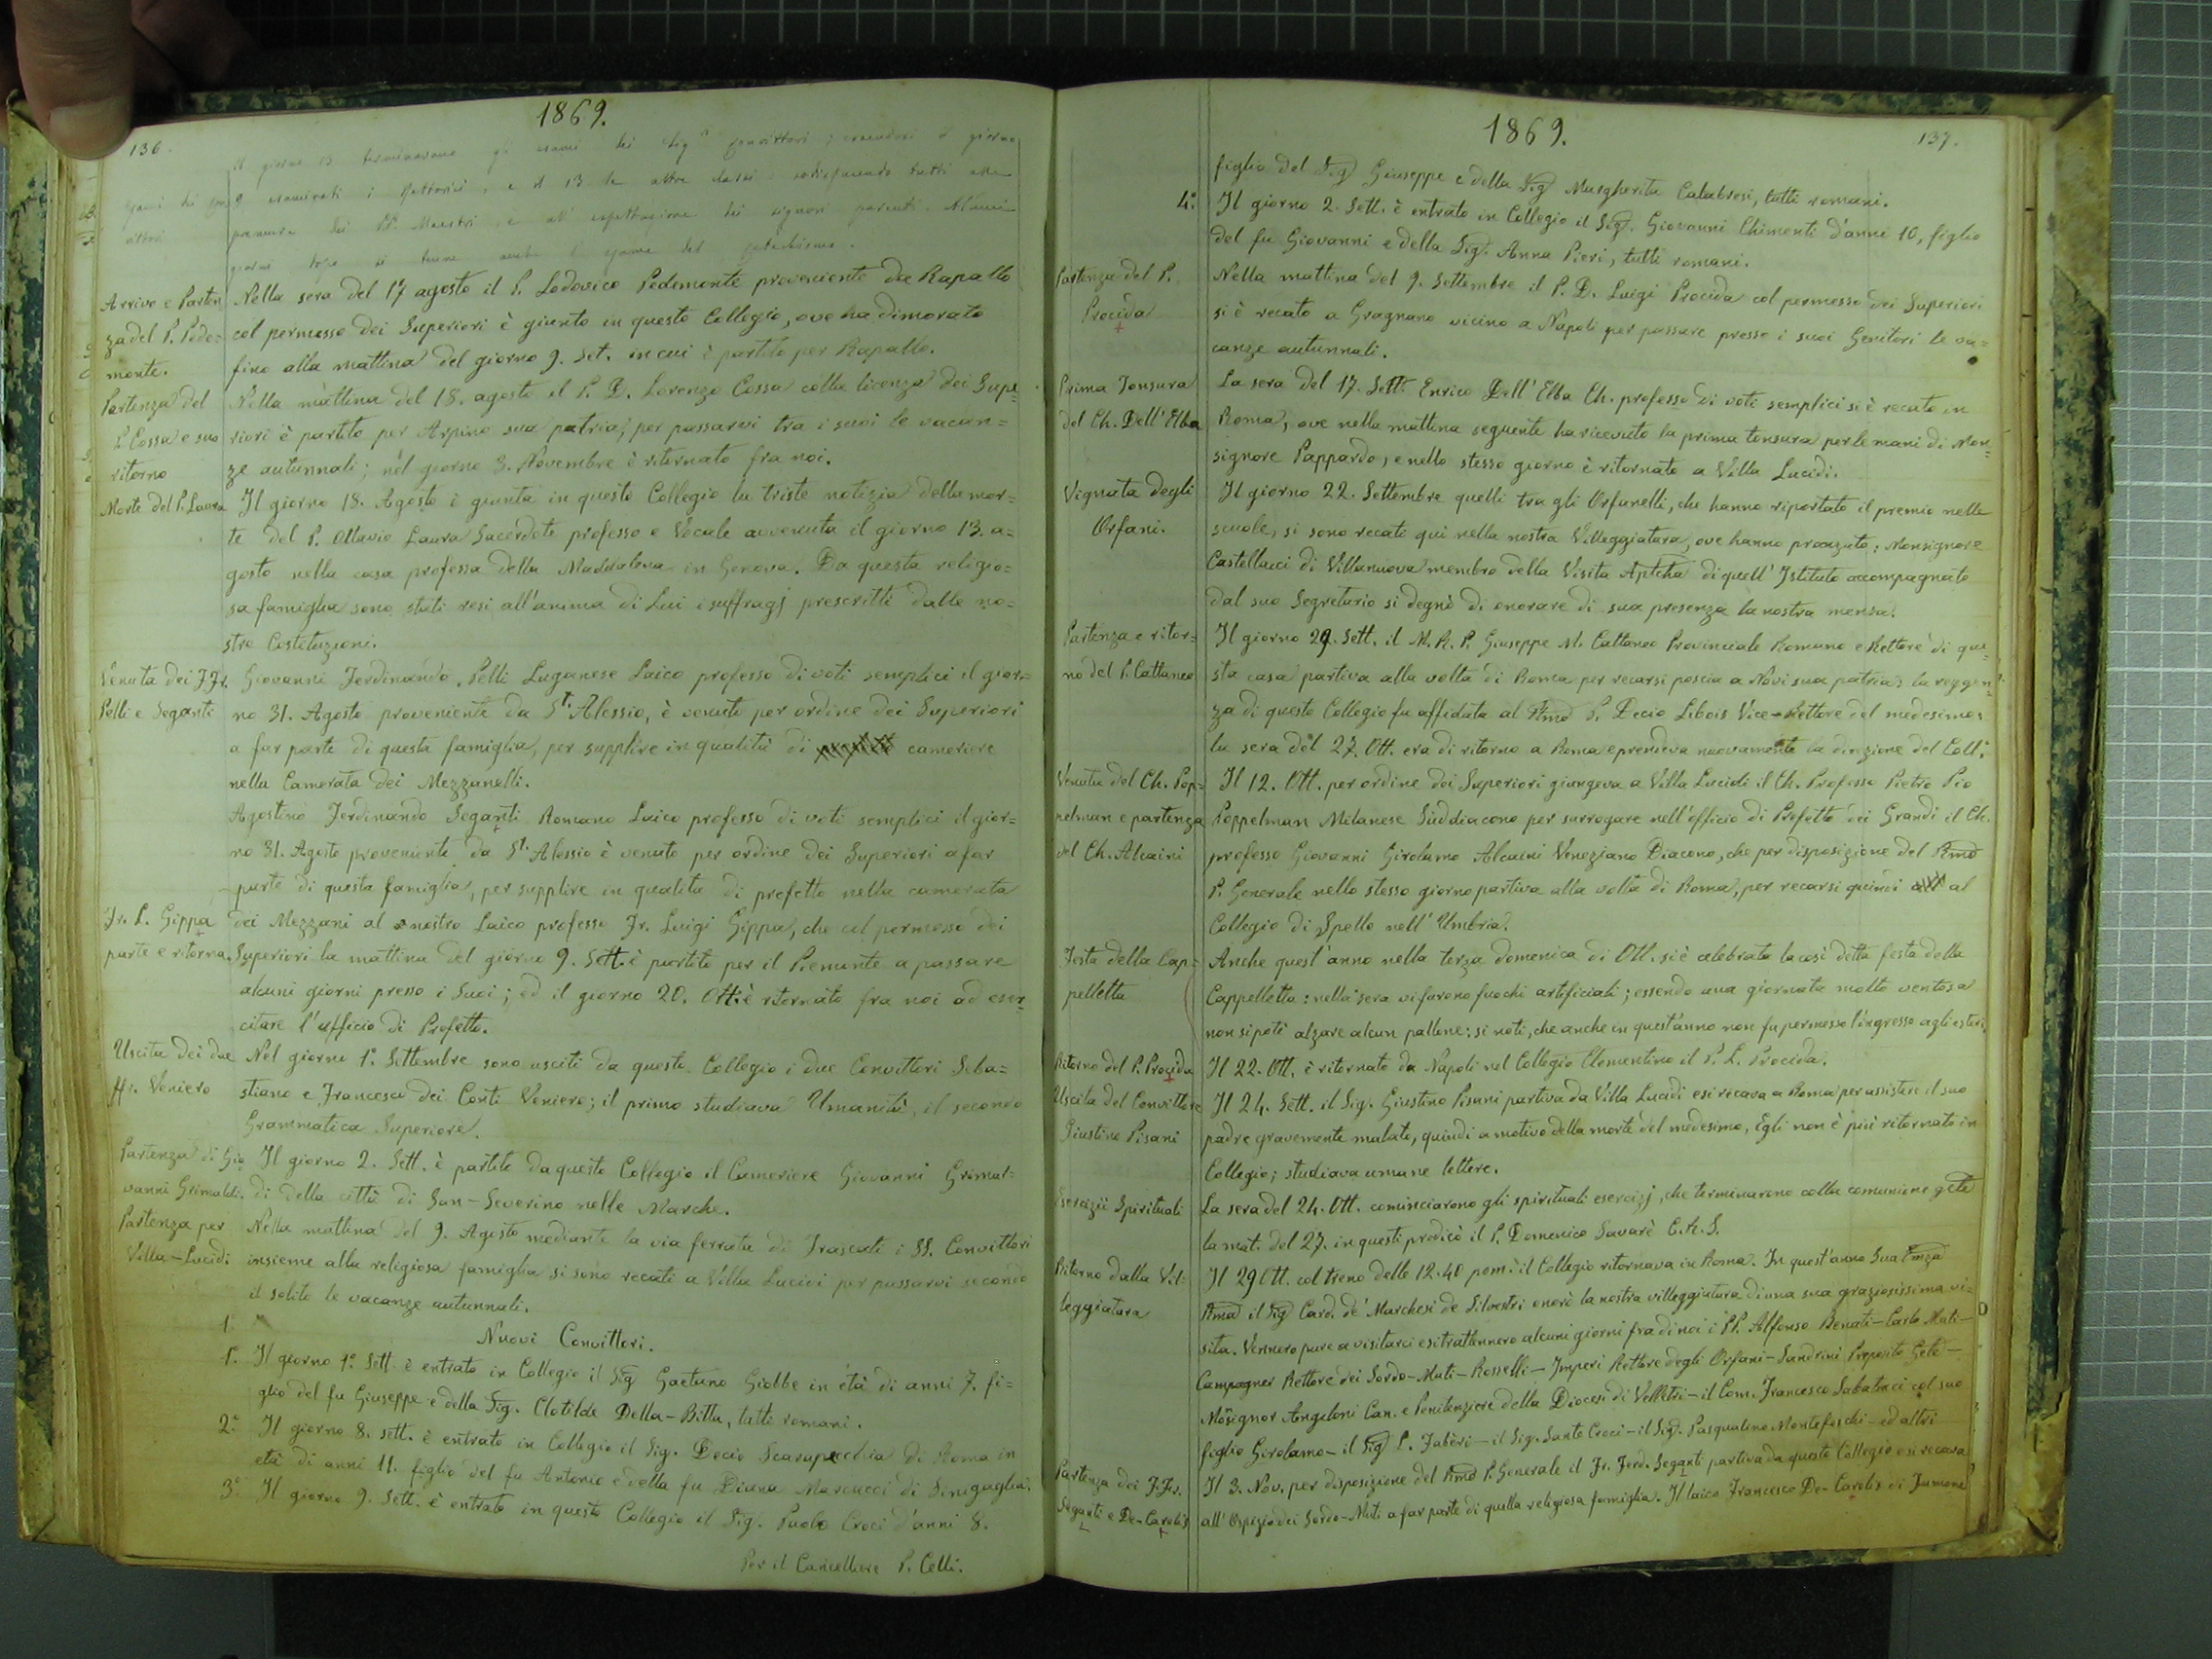 1869.
136.
Il giorno 13 terminarono gli esami dei Sig.ri Convittori;
9 esaminati i Rettorici, e il 13 le altre classi: sodisfacendo tutti alla
premura dei PP. Maestri, e all' espettazione dei signori parenti. Alcuni
giorni dopo si tenne anche l' esame del catechismo.
Arrivo e Parten
za del P. Pede=
monte.
Nella sera del 17 agosto il P. Lodovico Pedemonte proveniente da Rapallo
col permesso dei Superiori è giunto in questo Collegio, ove ha dimorato
fino alla mattina del giorno 9. Set. in cui è partito per Rapallo.
Partenza del
P. Cossa e suo
ritorno
Nella mattina del 18. agosto il P. D. Lorenzo Cossa colla licenza dei Supe=
riori è partito per Arpino sua patria, per passarvi tra i suoi le vacan=
ze autunnali; nel giorno 3. Novembre è ritornato fra noi.
Morte del P. Laura
Il giorno 18. Agosto è giunta in questo Collegio la triste notizia della mor=
te del P. Ottavio Laura Sacerdote professo e Vocale avvenuta il giorno 13. a=
gosto nella casa professa della Maddalena in Genova. Da questa religio=
sa famiglia sono stati resi all'anima di Lui i suffragj prescritti dalle no=
stre Costituzioni.
Venuta dei FFr.
Pelli e Seganti
Giovanni Ferdinando Pelli Luganese Laico professo di voti semplici il gior=
no 31. Agosto proveniente da St. Alessio, è venuto per ordine dei Superiori
a far parte di questa famiglia, per supplire in qualità di cameriere
nella Camerata dei Mezzanelli.
Agostino Ferdinando Seganti Romano Laico professo di voti semplici il gior=
no 31. Agosto proveniente da St. Alessio è venuto per ordine dei Superiori a far
parte di questa famiglia, per supplire in qualità di prefetto nella camerata
Fr. L. Gippa
parte e ritorna.
dei Mezzani al nostro Laico professo Fr. Luigi Gippa, che col permesso dei
Superiori la mattina del giorno 9. Sett. è partito per il Piemonte a passare
alcuni giorni presso i Suoi; ed il giorno 20. Ott. è ritornato fra noi ad eser=
citare l'ufficio di Prefetto.
Uscita dei due
ff. Veniero
Nel giorno 1.° Settembre sono usciti da questo Collegio i due Convittori Seba=
stiano e Francesco dei Conti Veniero; il primo studiava Umanità, il secondo
Grammatica Superiore.
Partenza di Gio
vanni Grimaldi.
Il giorno 2. Sett. è partito da questo Collegio il Cameriere Giovanni Grimal=
di della città di San-Severino nelle Marche.
Partenza per
Villa-Lucidi.
Nella mattina del 9. Agosto mediante la via ferrata di Frascati i SS. Convittori
insieme alla religiosa famiglia si sono recati a Villa Lucidi per passarvi secondo
il solito le vacanze autunnali.
1.
Nuovi Convittori.
1.° Il giorno 1.° Sett. è entrato in Collegio il Sig. Gaetano Giobbe in età di anni 7. fi=
glio del fu Giuseppe e della Sig. Clotilde Della-Bitta, tutti romani.
2.° Il giorno 8. sett. è entrato in Collegio il Sig. Decio Scarapecchia di Roma in
età di anni 11. figlio del fu Antonio e della fu Diana Marcucci di Sinigaglia.
3.° Il giorno 9. Sett. è entrato in questo Collegio il Sig. Paolo Croci d'anni 8.
Per il Cancelliere P. Celli.
1869.
137.
figlio del Sig. Giuseppe e della Sig. Margherita Calabresi, tutti romani.
4.° Il giorno 2. Sett. è entrato in Collegio il Sig. Giovanni Chimenti d'anni 10, figlio
del fu Giovanni e della Sig. Anna Pieri, tutti romani.
Partenza del P.
Procida
Nella mattina del 9. Settembre il P. D. Luigi Procida col permesso dei Superiori
si è recato a Gragnano vicino a Napoli per passare presso i suoi Genitori le va=
canze autunnali.
Prima Tonsura
del Ch. Dell' Elba
La sera del 17. Sett. Enrico Dell' Elba Ch. professo di voti semplici si è recato in
Roma, ove nella mattina seguente ha ricevuto la prima tonsura per le mani di Mon=
signore Pappardo, e nello stesso giorno è ritornato a Villa Lucidi.
Vignata degli
Orfani.
Il giorno 22. Settembre quelli tra gli Orfanelli, che hanno riportato il premio nelle
scuole, si sono recati qui nella nostra Villeggiatura, ove hanno pranzato: Monsignore
Castellacci di Villanuova membro della Visita Aptcha di quell' Istituto accompagnato
dal suo Segretario si degnò di onorare di sua presenza la nostra mensa.
Partenza e ritor=
no del P. Cattaneo
Il giorno 29. Sett. il M. R. P. Giuseppe M. Cattaneo Provinciale Romano e Rettore di que=
sta casa partiva alla volta di Roma per recarsi poscia a Novi sua patria: la reggen=
za di questo Collegio fu affidata al Rmo P. Decio Libois Vice-Rettore del medesimo:
la sera del 27. Ott. era di ritorno a Roma e prendeva nuovamente la direzione del Coll.°
Venuta del Ch. Pop=
pelman e partenza
del Ch. Alcaini
Il 12. Ott. per ordine dei Superiori giungeva a Villa Lucidi il Ch. Professo Pietro Pio
Poppelman Milanese Suddiacono per surrogare nell'officio di Prefetto dei Grandi il Ch.
professo Giovanni Girolamo Alcaini Veneziano Diacono, che per disposizione del Rmo
P. Generale nello stesso giorno partiva alla volta di Roma, per recarsi quindi al
Collegio di Spello nell' Umbria.
Festa della Cap=
pelletta
Anche quest'anno nella terza domenica di Ott. si è celebrata la così detta festa della
Cappelletta: nella sera vi furono fuochi artificiali; essendo una giornata molto ventosa
non si potè alzare alcun pallone: si noti, che anche in quest'anno non fu permesso l'ingresso agli esteri.
Ritorno del P. Procida
Il 22. Ott. è ritornato da Napoli nel Collegio Clementino il P. L. Procida.
Uscita del Convittore
Giustino Pisani
Il 24. Sett. il Sig. Giustino Pisani partiva da Villa Lucidi e si recava a Roma per assistere il suo
padre gravemente malato, quindi a motivo della morte del medesimo, Egli non è più ritornato in
Collegio; studiava umane lettere.
Esercizii Spirituali
La sera del 24. Ott. cominciarono gli spirituali esercizj, che terminarono colla comunione gnle
la mat. del 27. in questi predicò il P. Domenico Savarè C.R.S.
Ritorno dalla Vil=
leggiatura
Il 29 Ott. col treno delle 12.40 pom. il Collegio ritornava in Roma. In quest'anno Sua Emza
Rma il Sig. Card. de' Marchesi de Silvestri onorò la nostra villeggiatura di una sua graziosissima vi=
sita. Vennero pure a visitarci e si trattennero alcuni giorni fra di noi i PP. Alfonso Benati-Carlo Muti-
Campagner Rettore dei Sordo-Muti-Rosselli-Imperi Rettore degli Orfani-Sandrini Preposito Gnle-
Monsignor Angeloni Can. e Penitenziere della Diocesi di Velletri-il Com. Francesco Sabatucci col suo
figlio Girolamo-il Sig. P. Fabèri-il Sig. Sante Croci-il Sig. Pasqualino Montefoschi-ed altri
Partenza dei FFr.
Seganti e De-Carolis
Il 3. Nov. per disposizione del Rmo P. Generale il Fr. Ferd. Seganti partiva da questo Collegio e si recava
all' Ospizio dei Sordo-Muti a far parte di quella religiosa famiglia. Il laico Francesco De-Carolis di Fumone